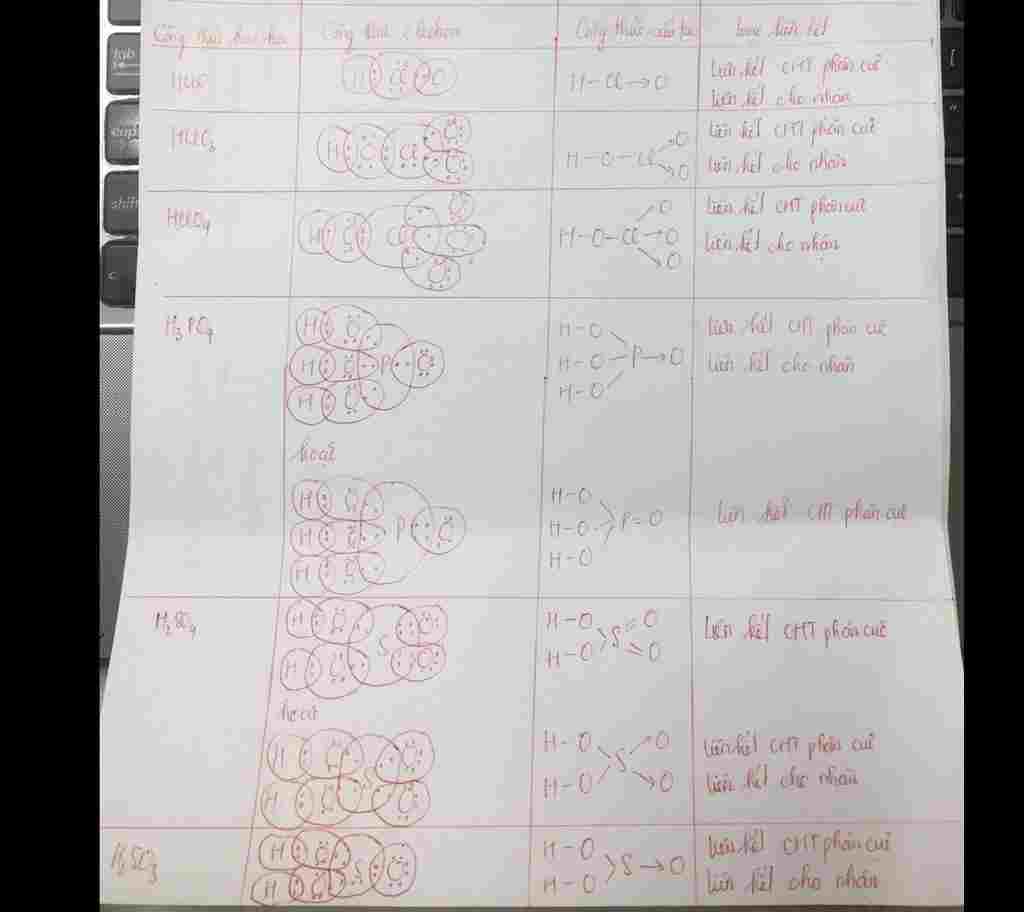 Công thức hoá học Công thức electron Công thức cấu tạo loại liên kết
HClO H Cl O H-Cl→O liên kết CHT phân cực
liên kết cho nhận
HClO3 H O Cl O O H-O-Cl O O liên kết CHT phân cực
liên kết cho nhận
HClO4 H O Cl O O O H-O-Cl→O O O liên kết CHT phân cực
liên kết cho nhận
H3PO4 H O H-O liên kết CHT phân cực
H O P O H-O P→O liên kết cho nhận
H O H-O
hoặc
H O H-O
H O P O H-O P=O liên kết CHT phân cực
H O H-O
H2SO4 H O S O H-O S=O liên kết CHT phân cực
H O O H-O =O
hoặc
H O S O H-O S→O liên kết CHT phân cực
H O O H-O →O liên kết cho nhận
H2SO3 H O S O H-O S→O liên kết CHT phân cực
H O H-O liên kết cho nhận
tab
shift